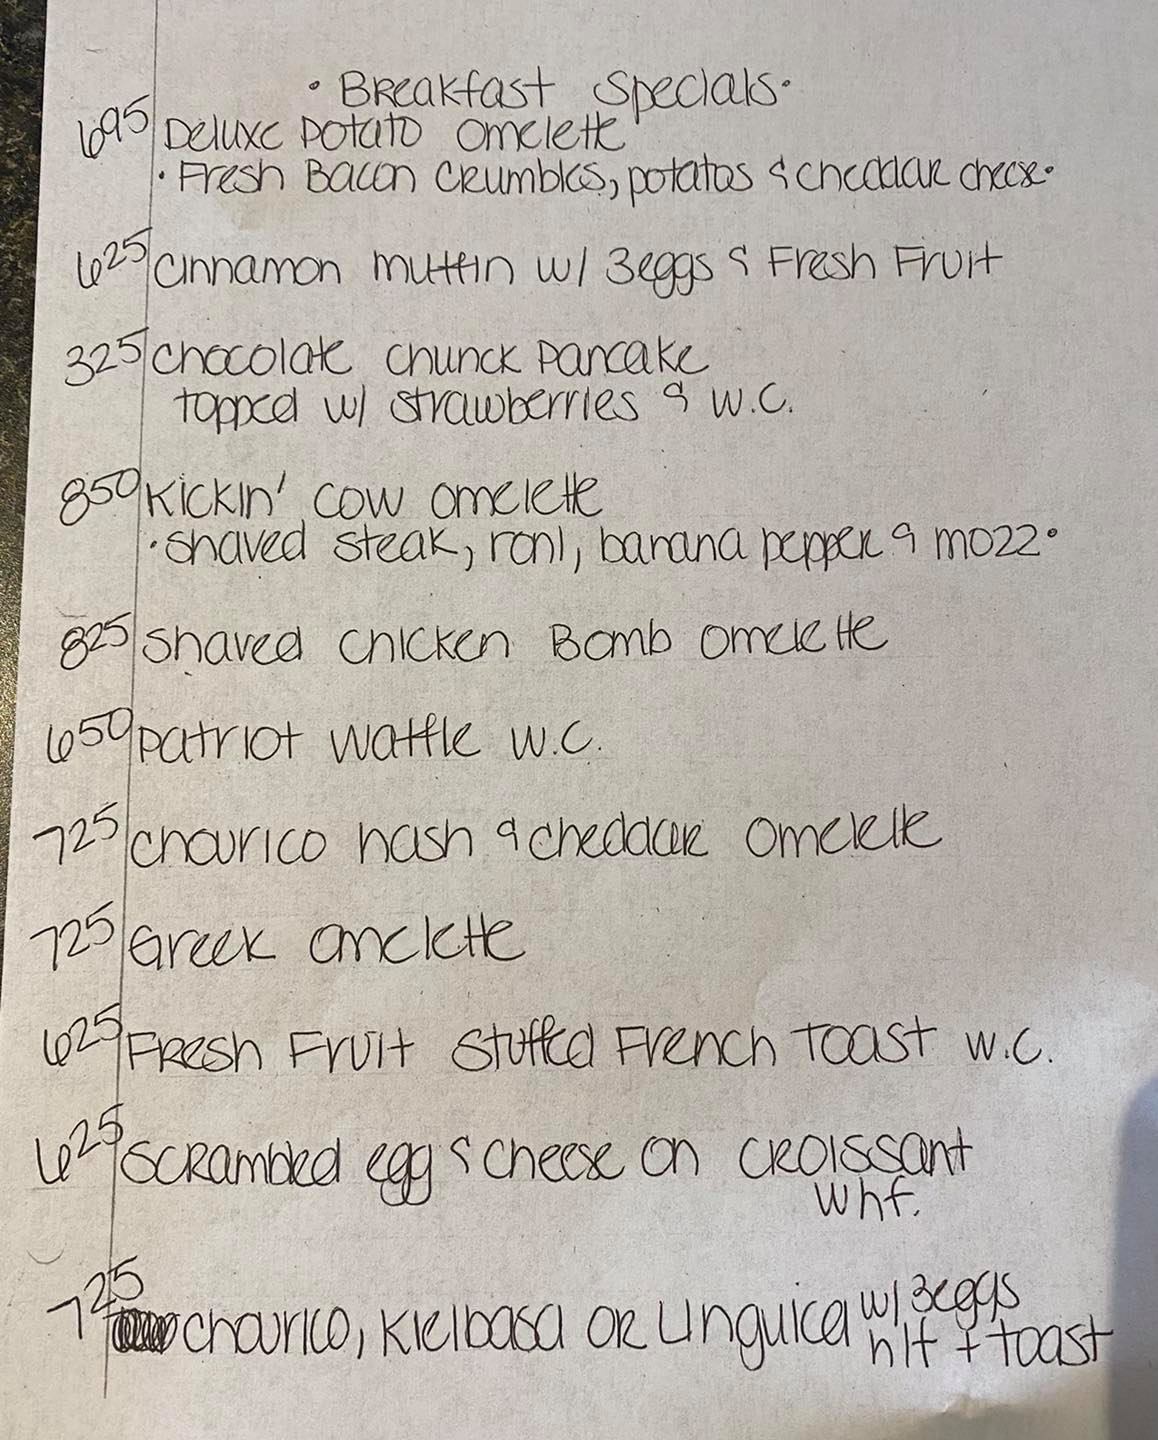 · Breakfast Specials ·
695 Deluxe Potato omelette
· Fresh Bacon Crumbles, potatos & cheddar cheese ·
625 cinnamon muffin w/ 3eggs & Fresh Fruit
325 chocolate chunck pancake
topped w/ strawberries & w.c.
850 Kickin' cow omelette
· shaved steak, roni, banana pepper & mozz ·
825 shaved chicken Bomb omelette
650 patriot waffle w.c.
725 chourico hash & cheddar omelette
725 Greek omelette
625 Fresh Fruit Stuffed French Toast w.c.
625 Scrambled egg & cheese on croissant
w hf.
725 chourico, Kielbasa or Linguica w/ 3eggs
hf + toast